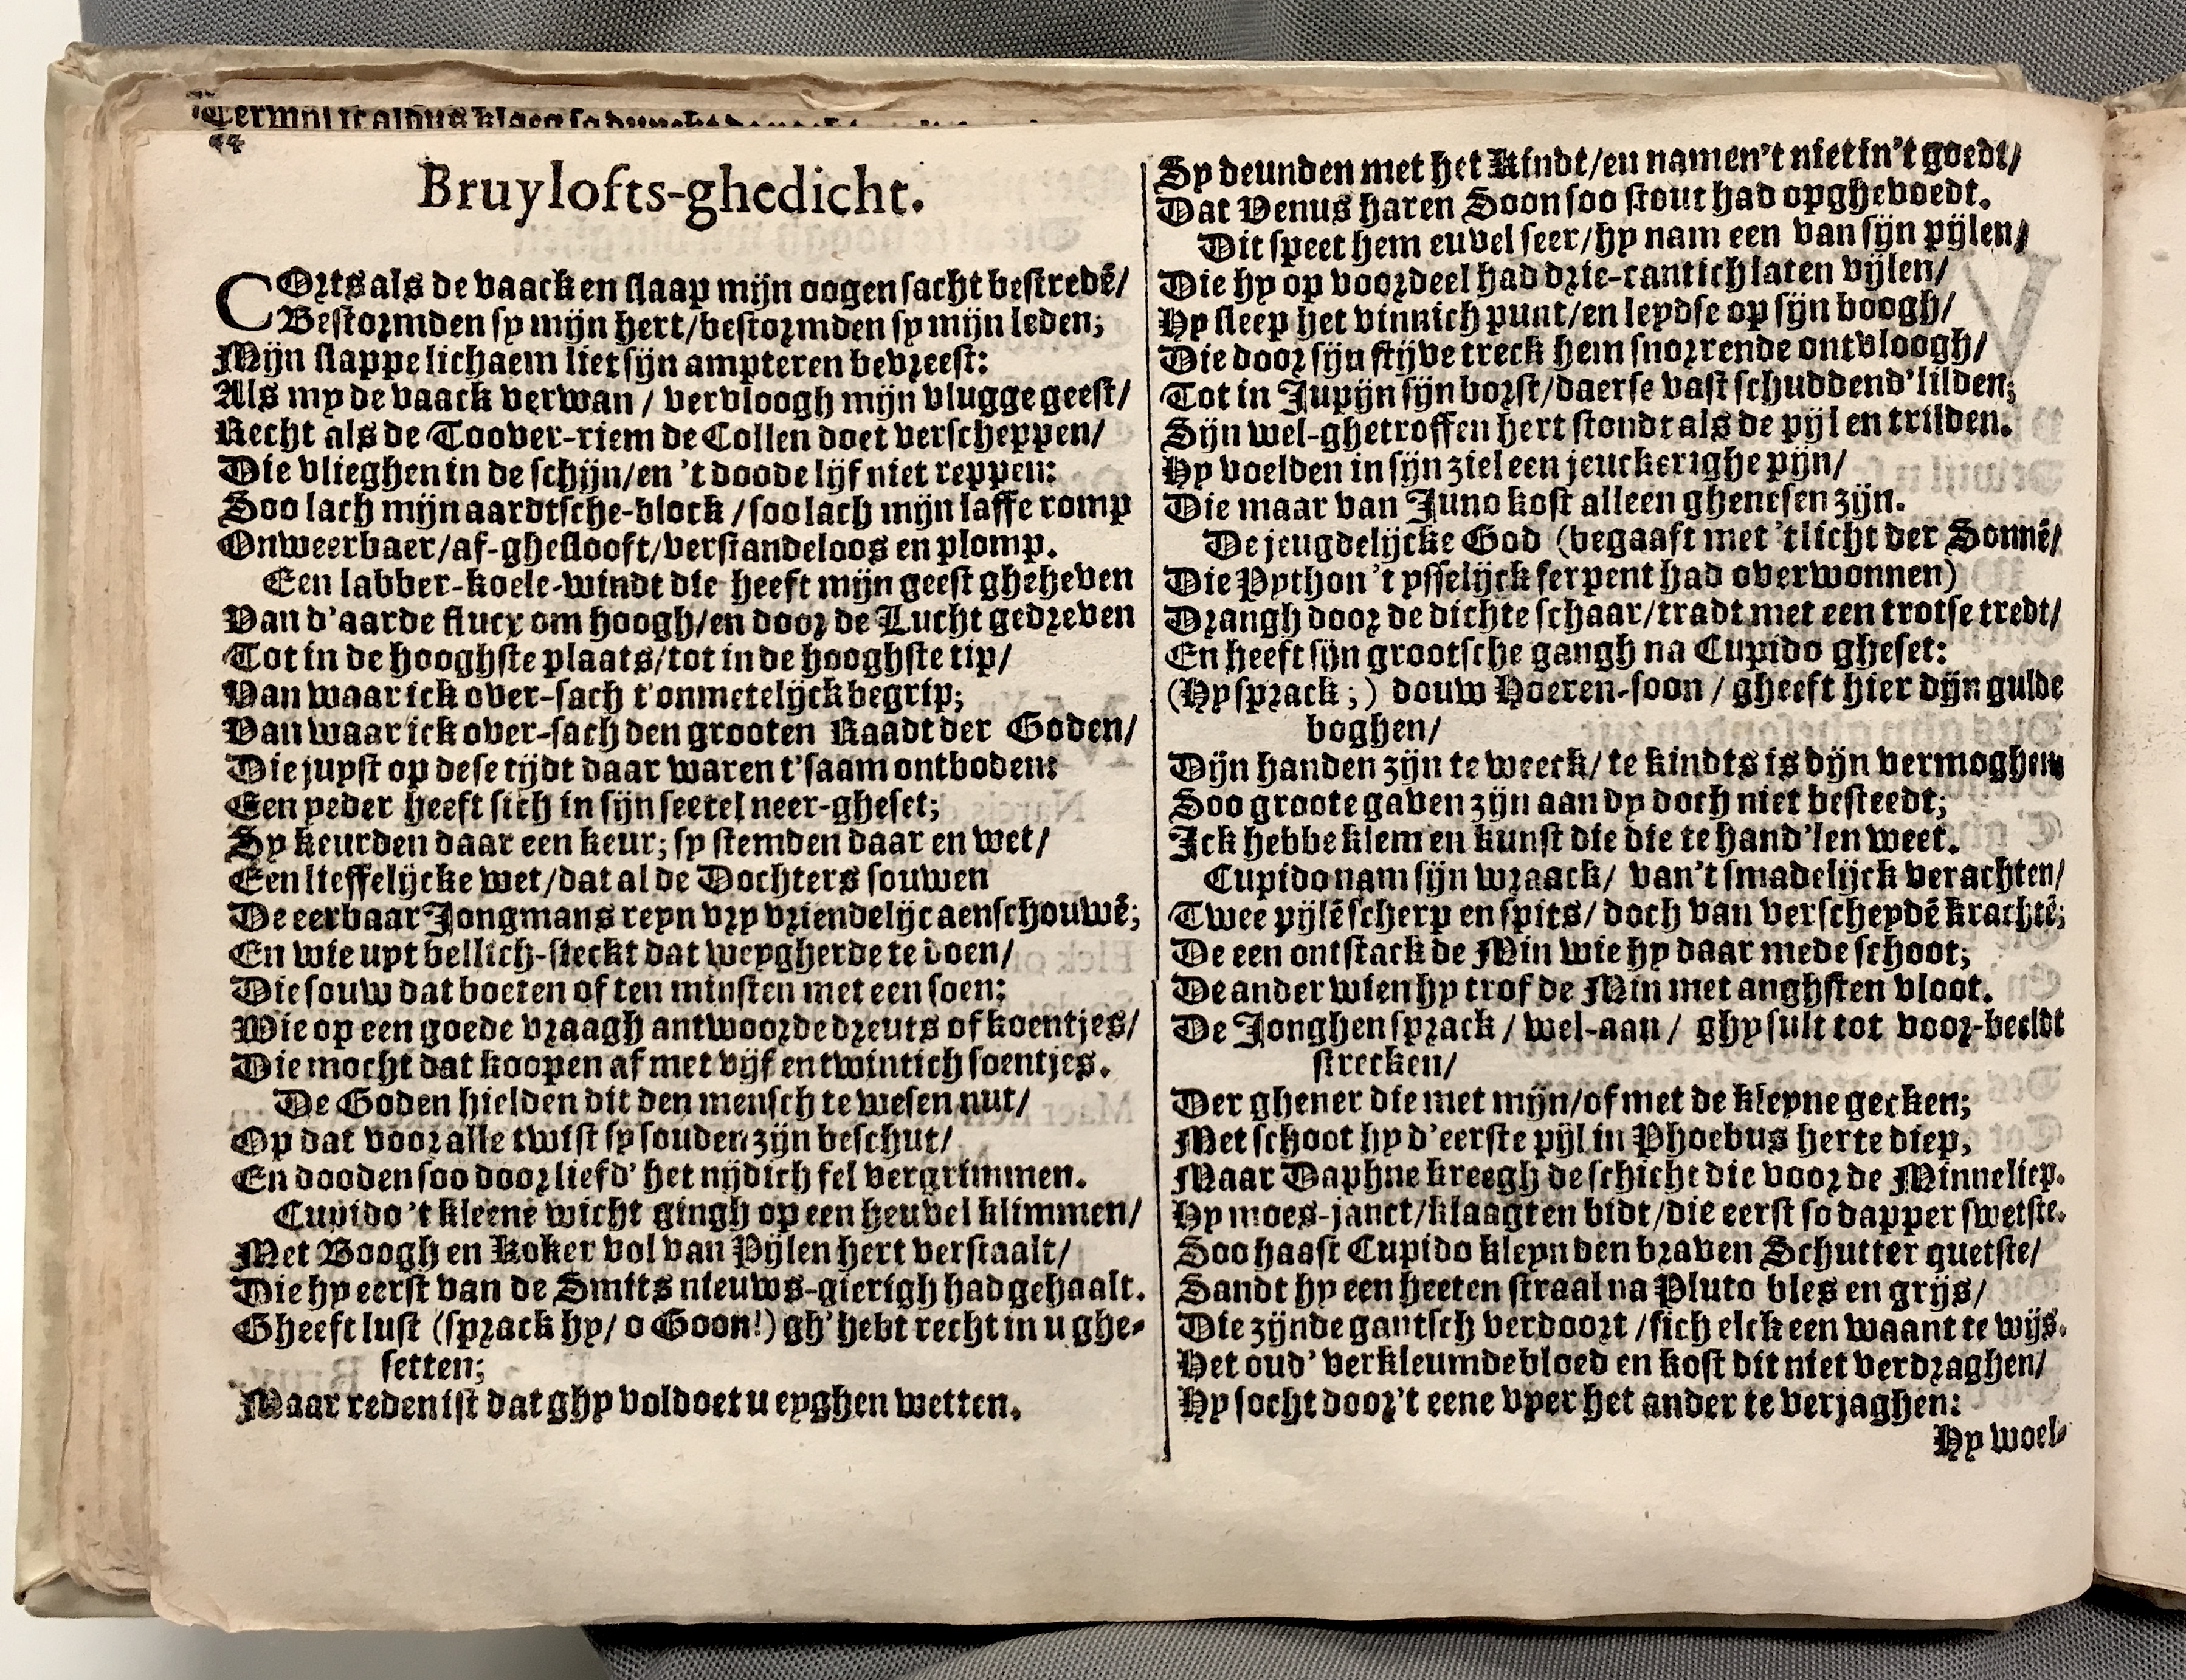 44
Bruylofts-ghedicht.
COrts als de vaack en slaap mijn oogen sacht bestredē/
Bestormden sy mijn hert/bestormden sy mijn leden;
Mijn slappe lichaem liet sijn ampteren bevreest:
Als my de vaack verwan / vervloogh mijn vlugge geest/
Recht als de Toover-riem de Collen doet verscheppen/
Die vlieghen in de schijn/en 't doode lijf niet reppen:
Soo lach mijn aardtsche-block / soo lach mijn laffe romp
Onweerbaer/af-ghesloost/verstandeloos en plomp.
Een labber-koele-windt die heeft mijn geest gheheven
Van d'aarde flucx om hoogh/en door de Lucht gedreven
Tot in de hooghste plaats/tot in de hooghste tip/
Van waar ick over-sach t'onmetelijck begrip;
Van waar ick over-sach den grooten Raadt der Goden/
Die juyst op dese tijdt daar waren t'saam ontboden:
Een yeder heeft sich in sijn seetel neer-gheset;
Sy keurden daar een keur; sy stemden daar en wet/
Een lieffelijcke wet/dat al de Dochters souwen
De eerbaar Jongmans reyn vry vriendelijc aenschouwē;
En wie uyt bellich-sieckt dat weygherde te doen/
Die souw dat boeten of ten minsten met een soen:
Wie op een goede vraagh antwoorde dreuts of koentjes/
Die mocht dat koopen af met vijf en twintich soentjes.
De Goden hielden dit den mensch te wesen nut/
Op dat voor alle twist sy souden zijn beschut/
En dooden soo door liefd' het nijdich fel vergrimmen.
Cupido 't kleene wicht gingh op een heuvel klimmen/
Met Boogh en Koker vol van Pijlen hert verstaalt/
Die hy eerst van de Smits nieuws-gierigh had gehaalt.
Gheeft lust (sprack hy/ o Goon!) gh'hebt recht in u ghe-
setten;
Maar reden ist dat ghy voldoet u eyghen wetten.
Sy deunden met het Kindt/en namen't niet in't goedt/
Dat Venus haren Soon soo stout had opghevoedt.
Dit speet hem euvel seer/hy nam een van sijn pijlen/
Die hy op voordeel had drie-cantich laten vijlen/
Hy sleep het vinnich punt/en leydse op sijn boogh/
Die door sijn stijve treck hem snorrende ontvloogh/
Tot in Jupijn sijn borst/daerse vast schuddend'lilden;
Sijn wel-ghetroffen hert stondt als de pijl en trilden.
Hy voelden in sijn ziel een jeuckerighe pijn/
Die maar van Juno kost alleen ghenesen zijn.
De jeugdelijcke God (begaaft met 'tlicht der Sonnē/
Die Python 't ysselijck serpent had overwonnen)
Drangh door de dichte schaar/tradt met een trotse tredt/
En heeft sijn grootsche gangh na Cupido gheset:
(Hy sprack;) douw Hoeren-soon / gheeft hier dijn gulde
boghen/
Dijn handen zijn te weeck/ te kindts is dijn vermoghen
Soo groote gaven zijn aan dy doch niet besteedt;
Ick hebbe klem en kunst die die te hand'len weet.
Cupido nam sijn wraack/ van't smadelijck verachten/
Twee pijlē scherp en spits/ doch van verscheydē krachtē;
De een ontstack de Min wie hy daar mede schoot;
De ander wien hy trof de Min met anghsten vloot.
De Jonghen sprack / wel-aan / ghy sult tot voor-beeldt
strecken/
Der ghener die met mijn/of met de kleyne gecken;
Met schoot hy d'eerste pijl in Phoebus herte diep,
Maar Daphne kreegh de schicht die voor de Minne liep.
Hy moes-janct/klaagt en bidt/die eerst so dapper swetste.
Soo haast Cupido kleyn den braven Schutter quetste/
Sandt hy een heeten straal na Pluto bles en grijs/
Die zijnde gantsch verdoort /sich elck een waant te wijs.
Het oud' verkleumde bloed en kost dit niet verdraghen/
Hy socht door't eene vyer het ander te verjaghen:
Hy woel-